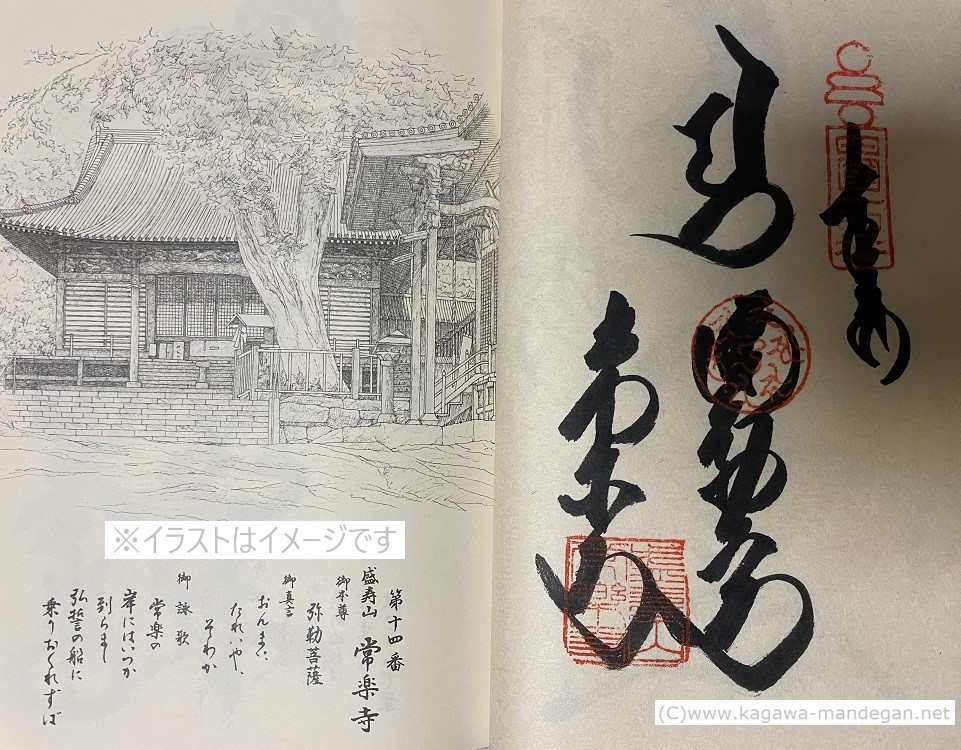 奉拝
弥勒
常楽寺
※イラストはイメージです
第十四番
盛寿山 常楽寺
御本尊
弥勒菩薩
御真言
おんまい
たれいや
そわか
御詠歌
常楽の
岸にはいつか
到らまし
弘誓の船に
乗りおくれずば
(C)www.kagawa-mandegan.net